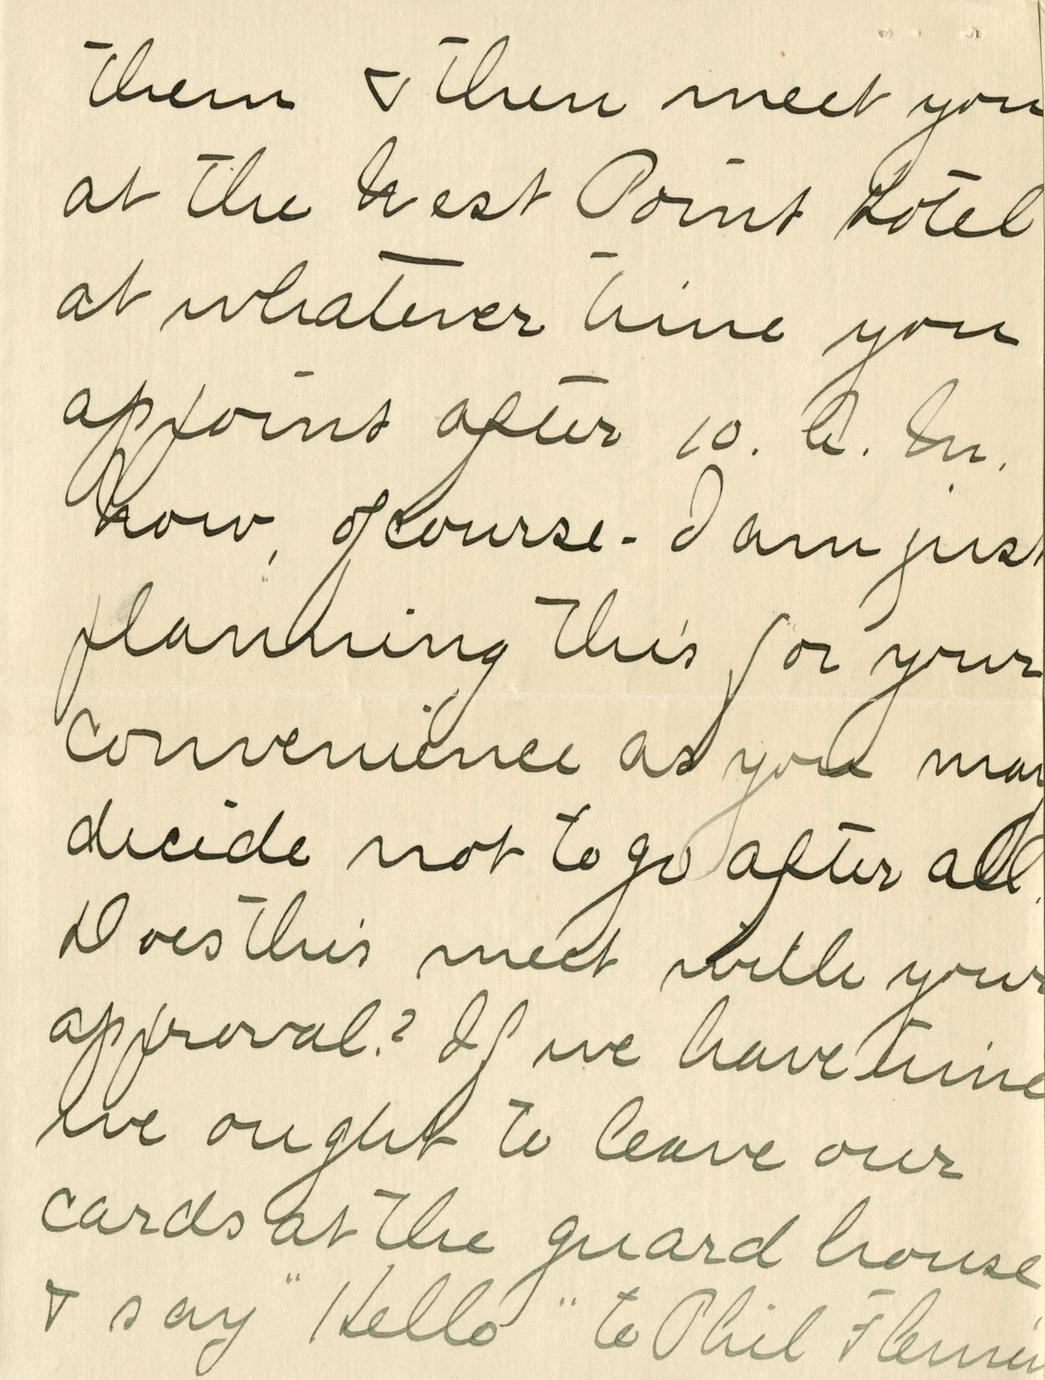 them & then meet you
at the West Point Hotel
at whatever time you
appoint after 10. A. M.
Now, of course - I am just
planning this for your
convenience as you may
decide not to go after all.
Does this meet with your
approval? If we have time
we ought to leave our
cards at the guard house
& say "Hello" to Phil